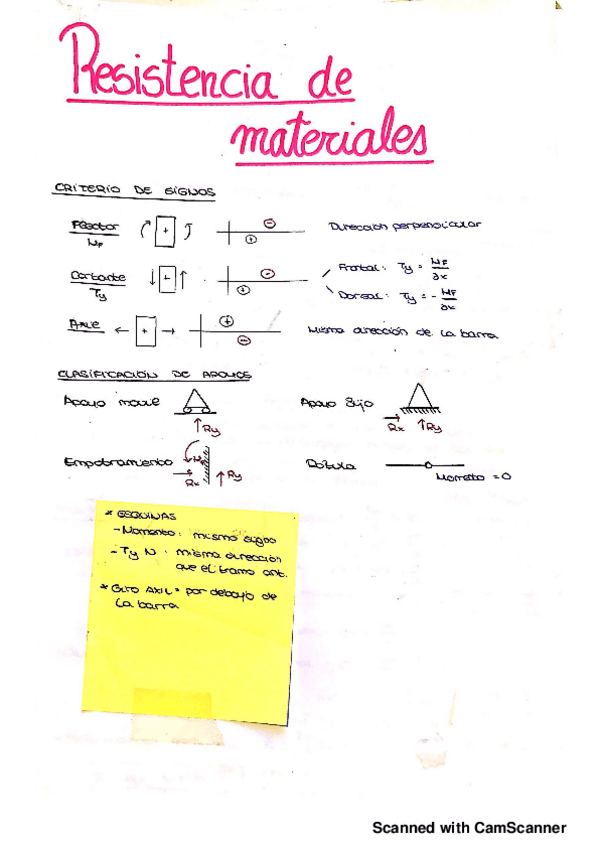 Resistencia de
materiales
CRITERIO DE SIGNOS
Flector
MF
+
⊖
⊕
Dirección perpendicular
Cortante
Ty
+
⊖
⊕
Frontal: Ty = MF/∂x
Dorsal: Ty = - MF/∂x
Axil
+
⊕
⊖
Misma dirección de la barra
CLASIFICACIÓN DE APOYOS
Apoyo movil
Ry
Apoyo fijo
Rx Ry
Empotramiento
Rx
Ry
Rótula
Momento = 0
* ESQUINAS
- Momento: mismo signo
- T y N: misma dirección
que el tramo ant.
* Giro AXIL = por debajo de
la barra
Scanned with CamScanner